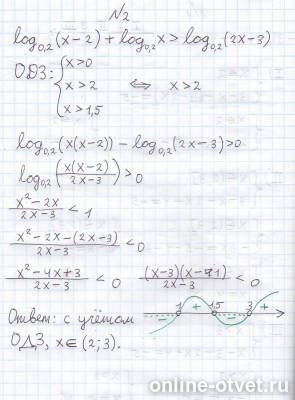 №2
log₀,₂(x-2) + log₀,₂x > log₀,₂(2x-3)
ОДЗ: { x>0
x>2 ⟺ x>2
x>1,5
log₀,₂(x(x-2)) - log₀,₂(2x-3)>0
log₀,₂(x(x-2)/2x-3) > 0
x²-2x/2x-3 < 1
x²-2x-(2x-3)/2x-3 < 0
x²-4x+3/2x-3 < 0 (x-3)(x-1)/2x-3 < 0
- 1 + 1,5 - 3 +
Ответ: с учётом
ОДЗ, x∈(2;3).
online-otvet.ru